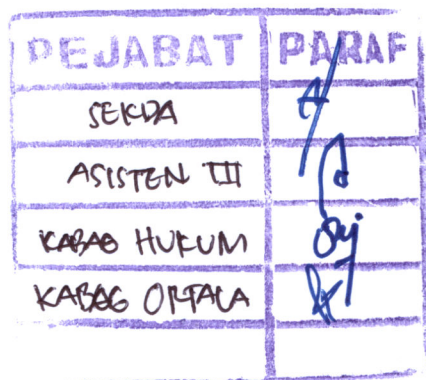 PEJABAT PARAF
SEKDA
ASISTEN III
KABAG HUKUM
KABAG ORTALA